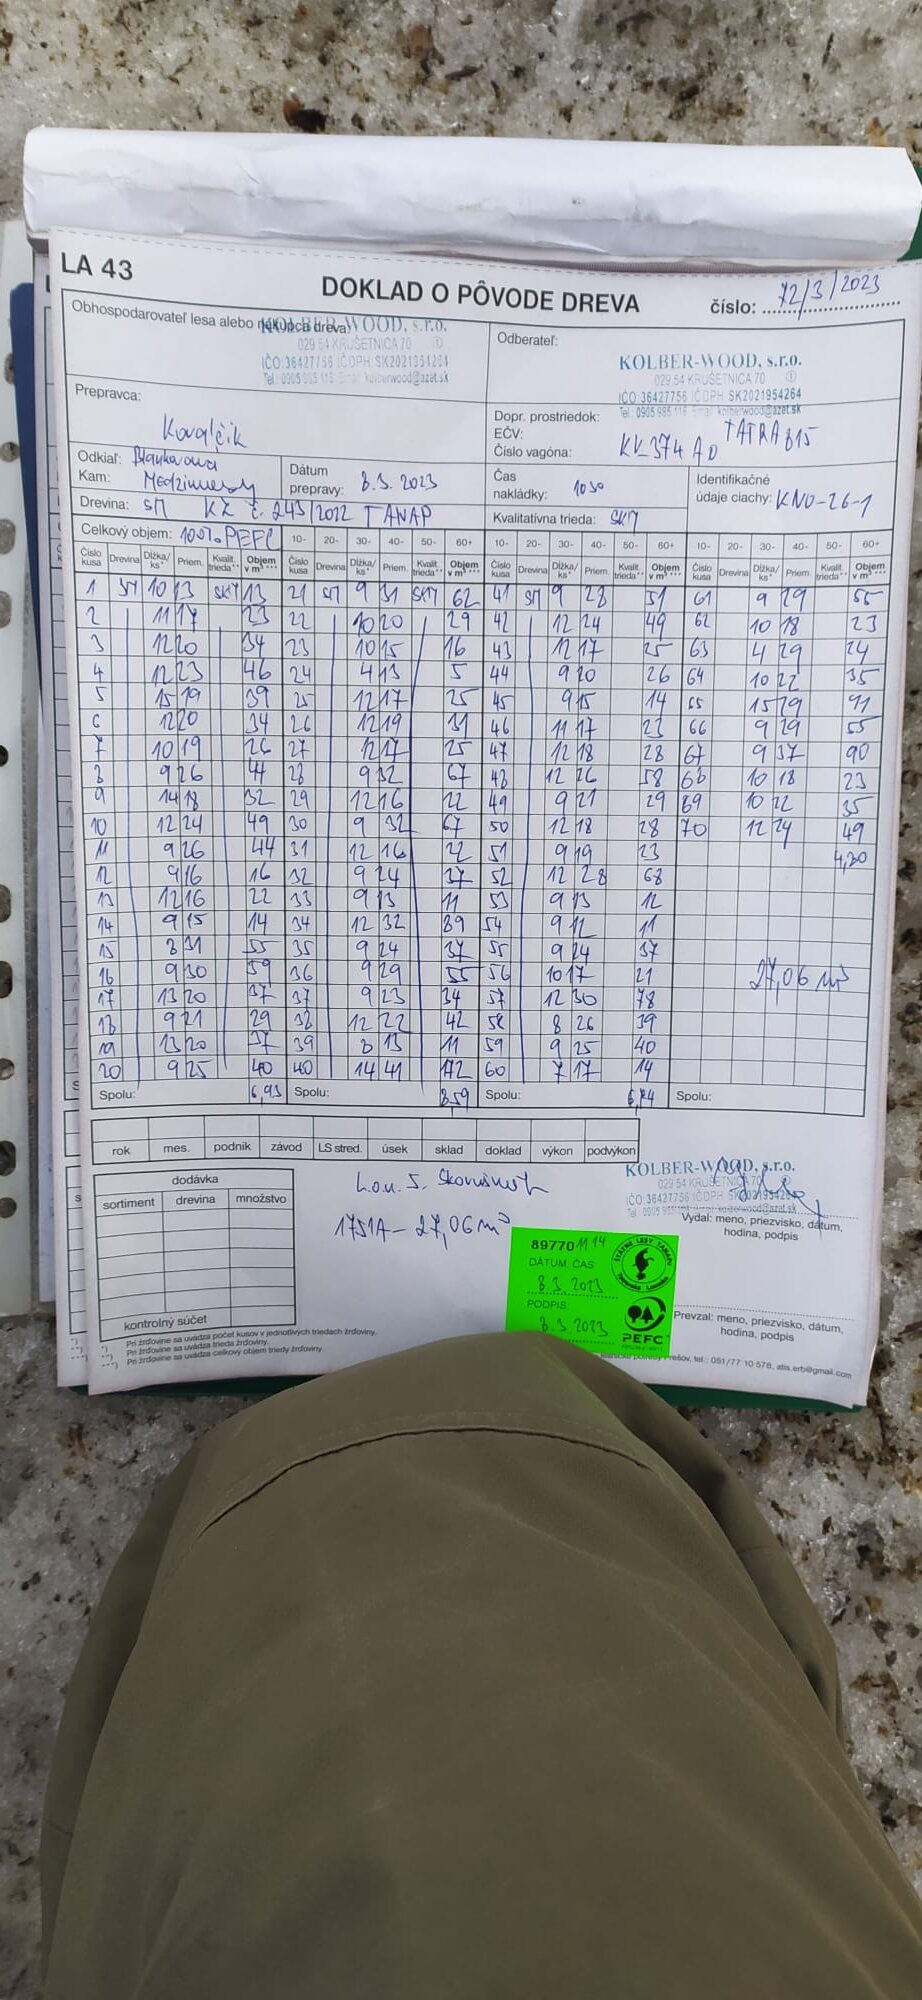 LA 43
DOKLAD O PÔVODE DREVA
číslo: 72/3/2023
Obhospodarovateľ lesa alebo nákupca dreva:
KOLBER-WOOD, s.r.o.
029 54 KRUŠETNICA 70 ①
IČO:36427756 IČDPH:SK2021954264
Tel.: 0905 985 116 Email: kolberwood@azet.sk
Odberateľ:
KOLBER-WOOD, s.r.o.
029 54 KRUŠETNICA 70 ①
IČO:36427756 IČDPH:SK2021954264
Tel.: 0905 985 116 Email: kolberwood@azet.sk
Prepravca:
Kovalčik
Dopr. prostriedok: TATRA 815
EČV: KK374AD
Číslo vagóna:
Odkiaľ:
Kam:
Dátum prepravy: 8.3.2023
Čas nakládky: 10 30
Identifikačné údaje ciachy: KNO-26-1
Drevina: SM KZ č. 243/2022 TANAP
Kvalitatívna trieda: SKM
Celkový objem: 100% PEFC
10- 20- 30- 40- 50- 60+ 10- 20- 30- 40- 50- 60+ 10- 20- 30- 40- 50- 60+
Číslo kusa Drevina Dĺžka/ks* Priem. Kvalit. trieda** Objem v m³*** Číslo kusa Drevina Dĺžka/ks* Priem. Kvalit. trieda** Objem v m³*** Číslo kusa Drevina Dĺžka/ks* Priem. Kvalit. trieda** Objem v m³*** Číslo kusa Drevina Dĺžka/ks* Priem. Kvalit. trieda** Objem v m³***
1 SM 10 13 SKM 13 21 SM 9 31 SKM 62 41 SM 9 28 51 61 9 29 55
2 11 17 23 22 10 20 29 42 12 24 49 62 10 18 23
3 12 20 34 23 10 15 16 43 12 17 25 63 4 29 24
4 12 23 46 24 4 13 5 44 9 20 26 64 10 22 35
5 15 19 39 25 12 17 25 45 9 15 14 65 15 29 91
6 12 20 34 26 12 19 31 46 11 17 23 66 9 29 55
7 10 19 26 27 12 17 25 47 12 18 28 67 9 37 90
8 9 26 44 28 9 32 67 48 12 26 58 68 10 18 23
9 14 18 32 29 12 16 22 49 9 21 29 69 10 22 35
10 12 24 49 30 9 32 67 50 12 18 28 70 12 24 49
11 9 26 44 31 12 16 22 51 9 19 23 4,80
12 9 16 16 32 9 24 37 52 12 28 68
13 12 16 22 33 9 13 11 53 9 13 12
14 9 15 14 34 12 32 89 54 9 12 11
15 8 31 55 35 9 24 37 55 9 24 37
16 9 30 59 36 9 29 55 56 10 17 21 27,06 m³
17 13 20 37 37 9 23 34 57 12 30 78
18 9 21 29 38 12 22 42 58 8 26 39
19 13 20 37 39 8 13 11 59 9 25 40
20 9 25 40 40 14 41 172 60 7 17 14
Spolu: 6,93 Spolu: 8,59 Spolu: 6,74 Spolu:
rok mes. podnik závod LS stred. úsek sklad doklad výkon podvýkon
dodávka
sortiment drevina množstvo
kontrolný súčet
1751A – 27,06 m³
KOLBER-WOOD, s.r.o.
029 54 KRUŠETNICA 70
IČO:36427756 IČDPH:SK2021954264
Vydal: meno, priezvisko, dátum,
hodina, podpis
89770 11 14
DÁTUM, ČAS
8.3.2023
PODPIS
8.3.2023
ŠTÁTNE LESY TANAPU
Tatranská Lomnica
PEFC
Prevzal: meno, priezvisko, dátum,
hodina, podpis
*) Pri žrďovine sa uvádza počet kusov v jednotlivých triedach žrďoviny.
**) Pri žrďovine sa uvádza trieda žrďoviny.
***) Pri žrďovine sa uvádza celkový objem triedy žrďoviny.
potreby Prešov, tel.: 051/77 10 578, atis.erb@gmail.com